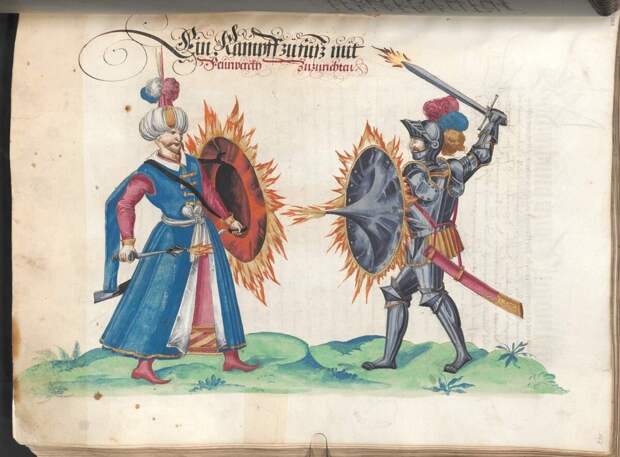 Ein Kampff zu fuß mit
Feürwerckh zuzurichten